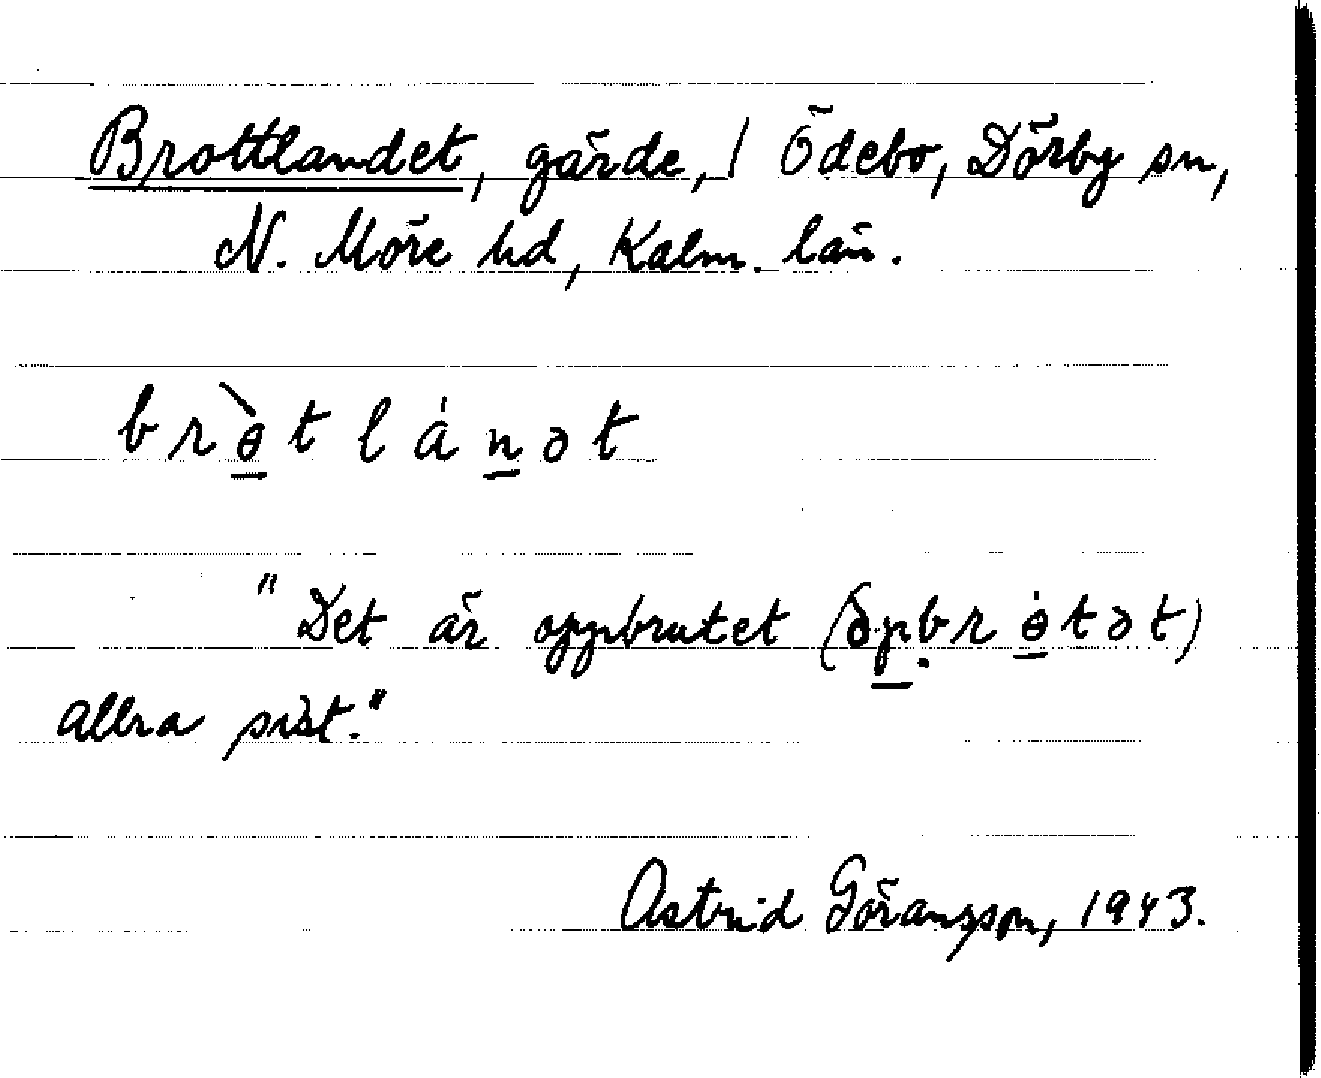 Brottlandet, gärde, / Ödebo, Dörby sn,
N. Möre hd, Kalm. län.
brɵ̠̀tlȧn̠ət
"Det är oppbrutet (òp̠ḅrɵ̠̇tət)
allra sist."
Astrid Göransson, 1943.